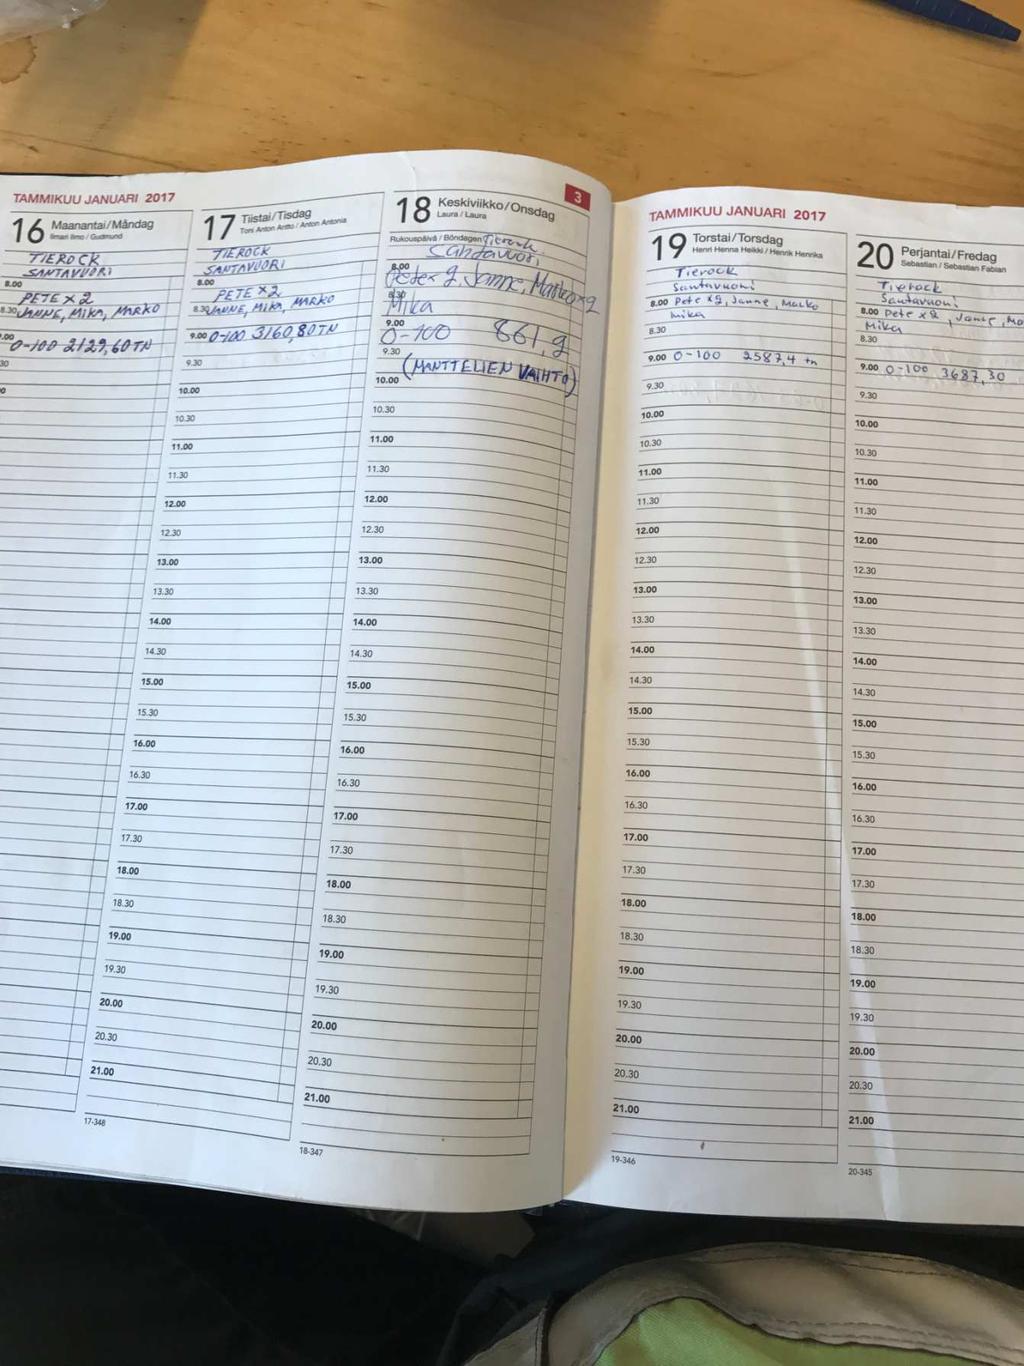 TAMMIKUU JANUARI 2017
16 Maanantai/Måndag
Ilmari Ilmo / Gudmund
TIEROCK
SANTAVUORI
8.00
PETE x 2
8.30 JANNE, MIKA, MARKO
9.00 0-100 2129,60 TN
17 Tiistai/Tisdag
Toni Anton Antto / Anton Antonia
TIEROCK
SANTAVUORI
8.00
PETE x 2
8.30 JANNE, MIKA, MARKO
9.00 0-100 3160,80 TN
9.30
10.00
10.30
11.00
11.30
12.00
12.30
13.00
13.30
14.00
14.30
15.00
15.30
16.00
16.30
17.00
17.30
18.00
18.30
19.00
19.30
20.00
20.30
21.00
17-348
3
18 Keskiviikko/Onsdag
Laura / Laura
Rukouspäivä / Böndagen Tierock
Santavuori
8.00
Pete x 2, Janne, Marko x 2
8.30
Mika
9.00
0-100 861,2
9.30
(MANTTELIEN VAIHTO)
10.00
10.30
11.00
11.30
12.00
12.30
13.00
13.30
14.00
14.30
15.00
15.30
16.00
16.30
17.00
17.30
18.00
18.30
19.00
19.30
20.00
20.30
21.00
18-347
TAMMIKUU JANUARI 2017
19 Torstai/Torsdag
Henri Henna Heikki / Henrik Henrika
Tierock
Santavuori
8.00 Pete x 2, Janne, Marko
Mika
8.30
9.00 0-100 2587,4 tn
9.30
10.00
10.30
11.00
11.30
12.00
12.30
13.00
13.30
14.00
14.30
15.00
15.30
16.00
16.30
17.00
17.30
18.00
18.30
19.00
19.30
20.00
20.30
21.00
19-346
20 Perjantai/Fredag
Sebastian / Sebastian Fabian
Tierock
Santavuori
8.00 Pete x 2, Janne, Ma
Mika
8.30
9.00 0-100 3687,30
9.30
10.00
10.30
11.00
11.30
12.00
12.30
13.00
13.30
14.00
14.30
15.00
15.30
16.00
16.30
17.00
17.30
18.00
18.30
19.00
19.30
20.00
20.30
21.00
20-345